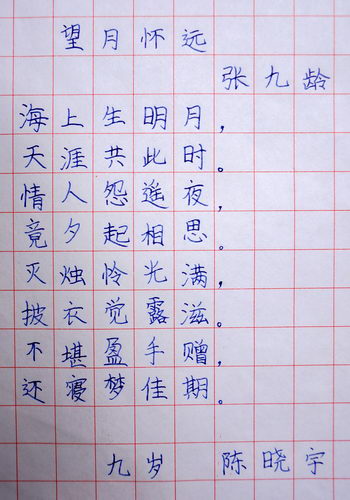 望月怀远
张九龄
海上生明月，
天涯共此时。
情人怨遥夜，
竟夕起相思。
灭烛怜光满，
披衣觉露滋。
不堪盈手赠，
还寝梦佳期。
九岁 陈晓宇